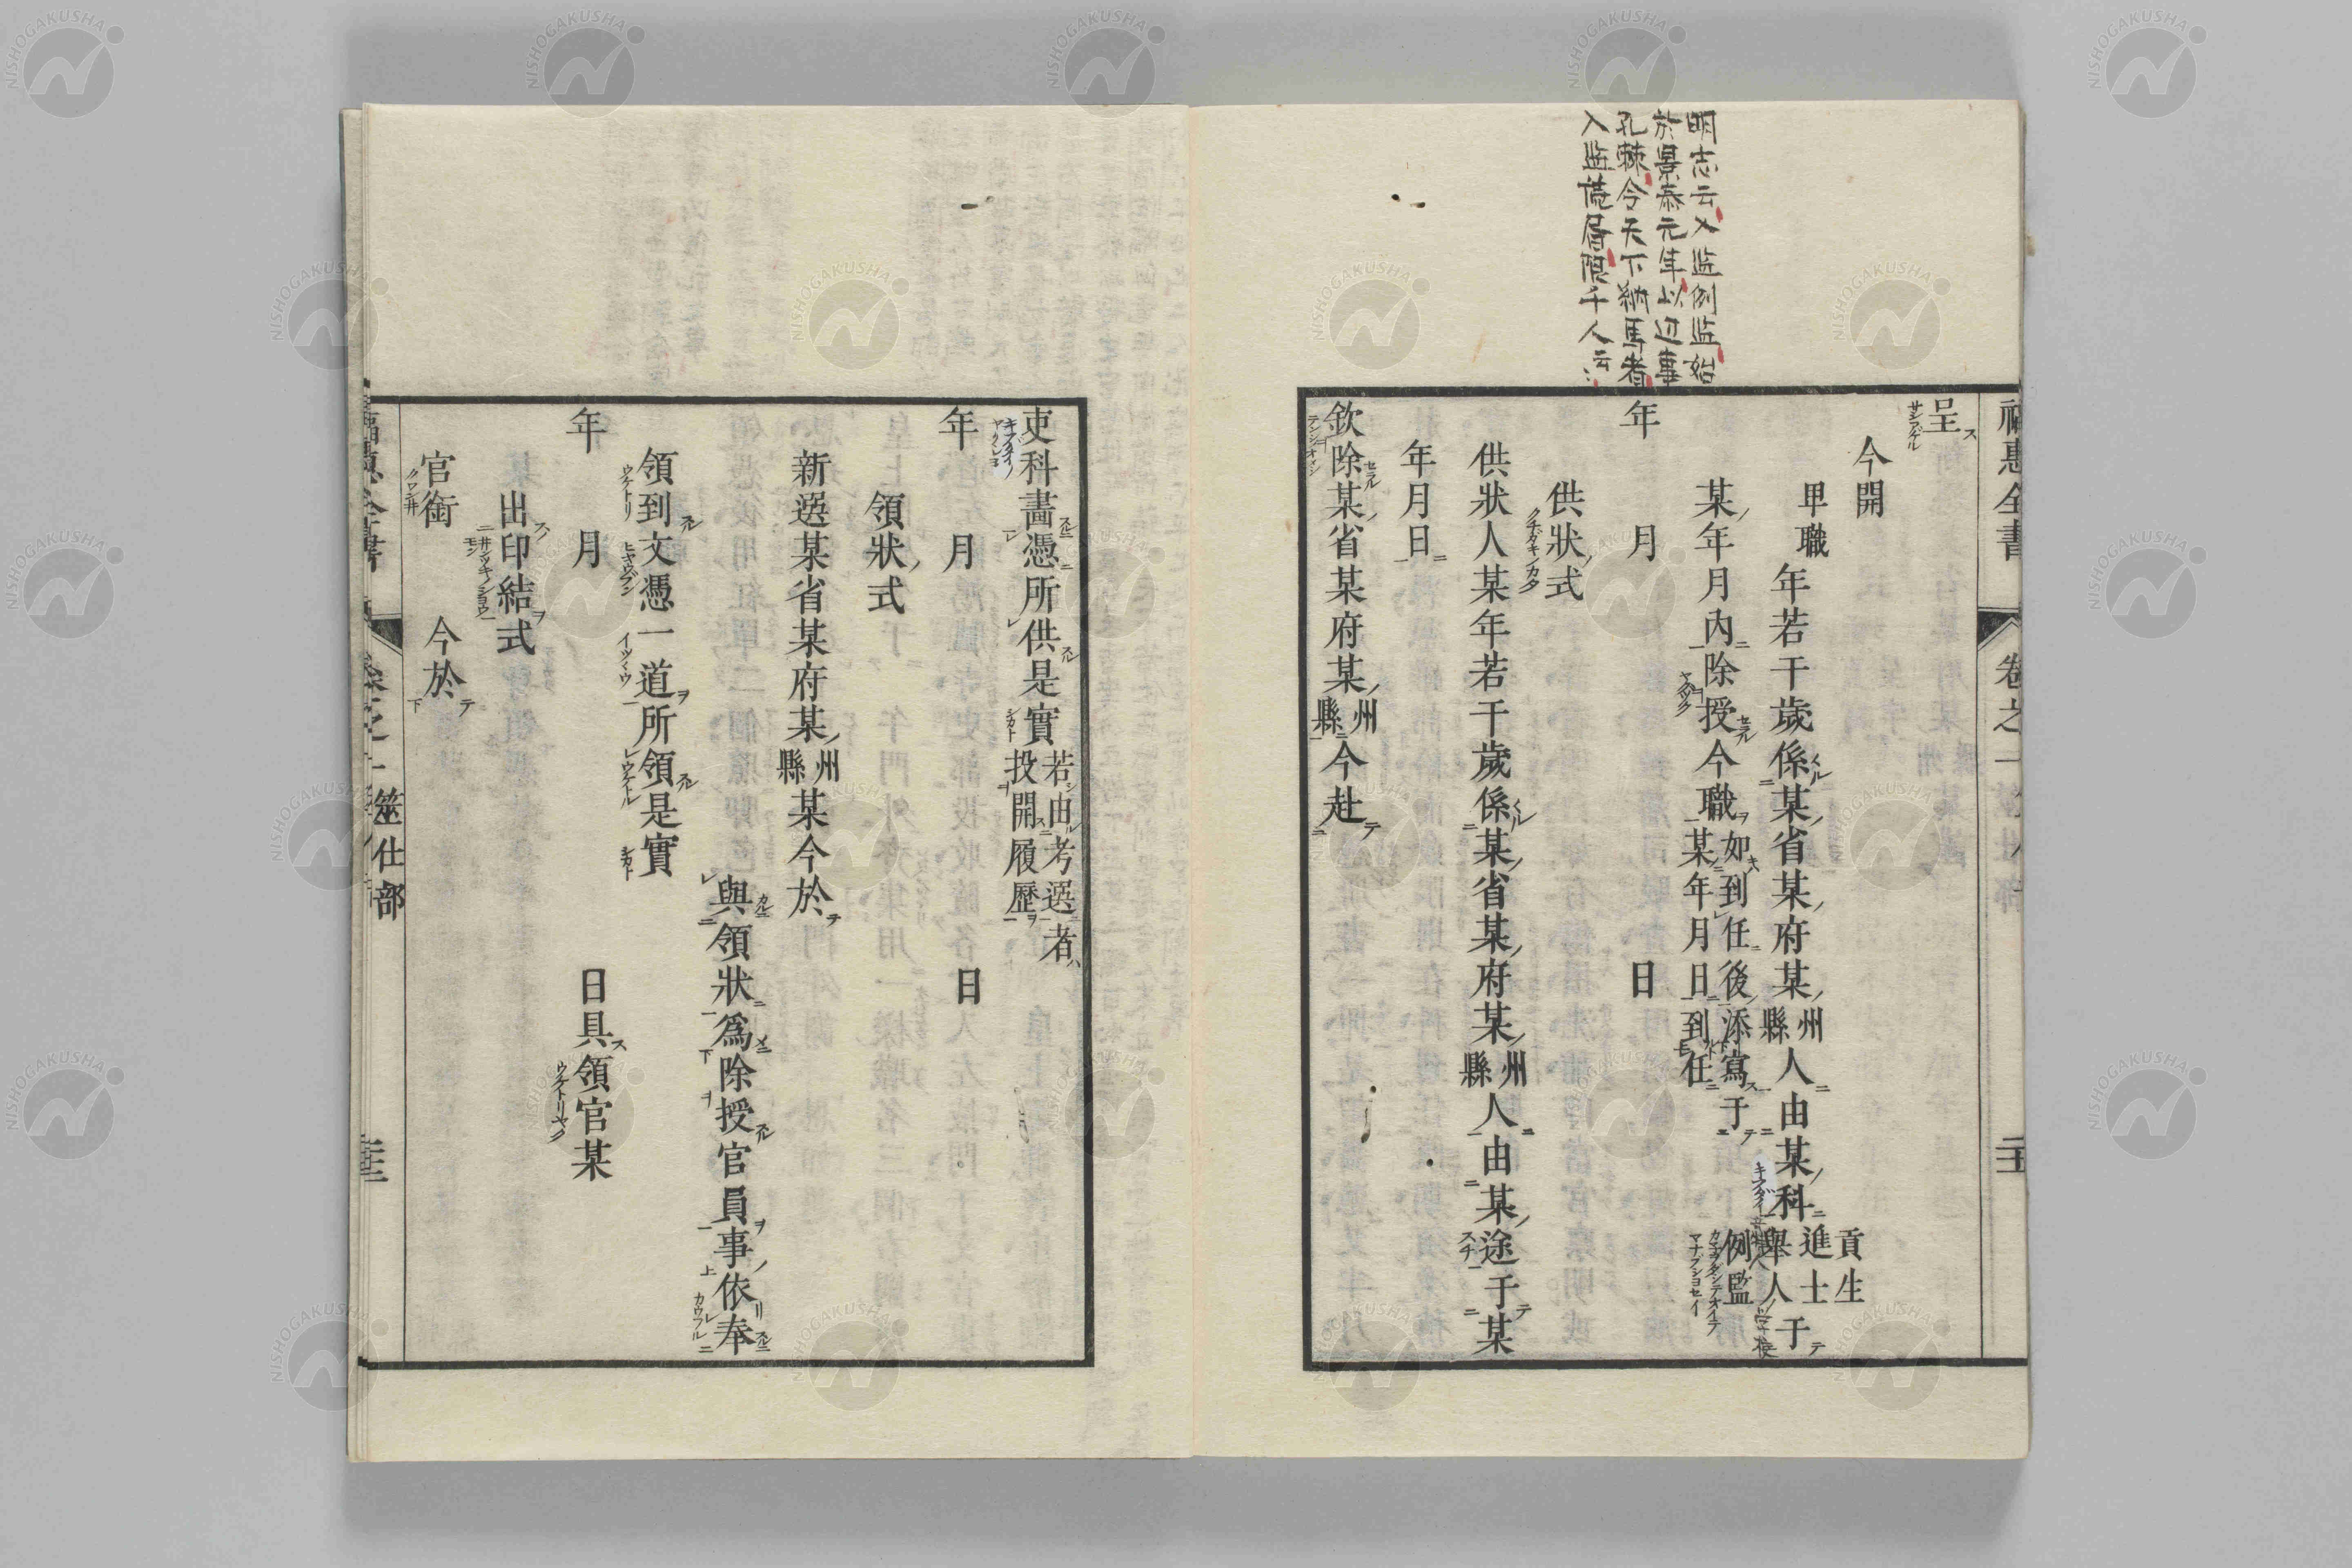 明志云入监例监始
於景泰元年以边事
孔棘令天下納馬者
入监讀層限千人云
呈
今開
卑職年若干歲係某省某府某州縣人由某科貢生進士舉人例監于
某年月內除授今職如到任後添寫于某年月日到任
年月日
供狀式
供狀人某年若干歲係某省某府某州縣人由某途于某
年月日
欽除某省某府某州縣今赴
吏科畵憑所供是實若由考選者投開履歷
年月日
領狀式
新選某省某府某州縣某今於
與領狀爲除授官員事依奉
領到文憑一道所領是實
年月日具領官某
出印結式
官銜今於
福惠全書
卷之一
筮仕部
NISHOGAKUSHA